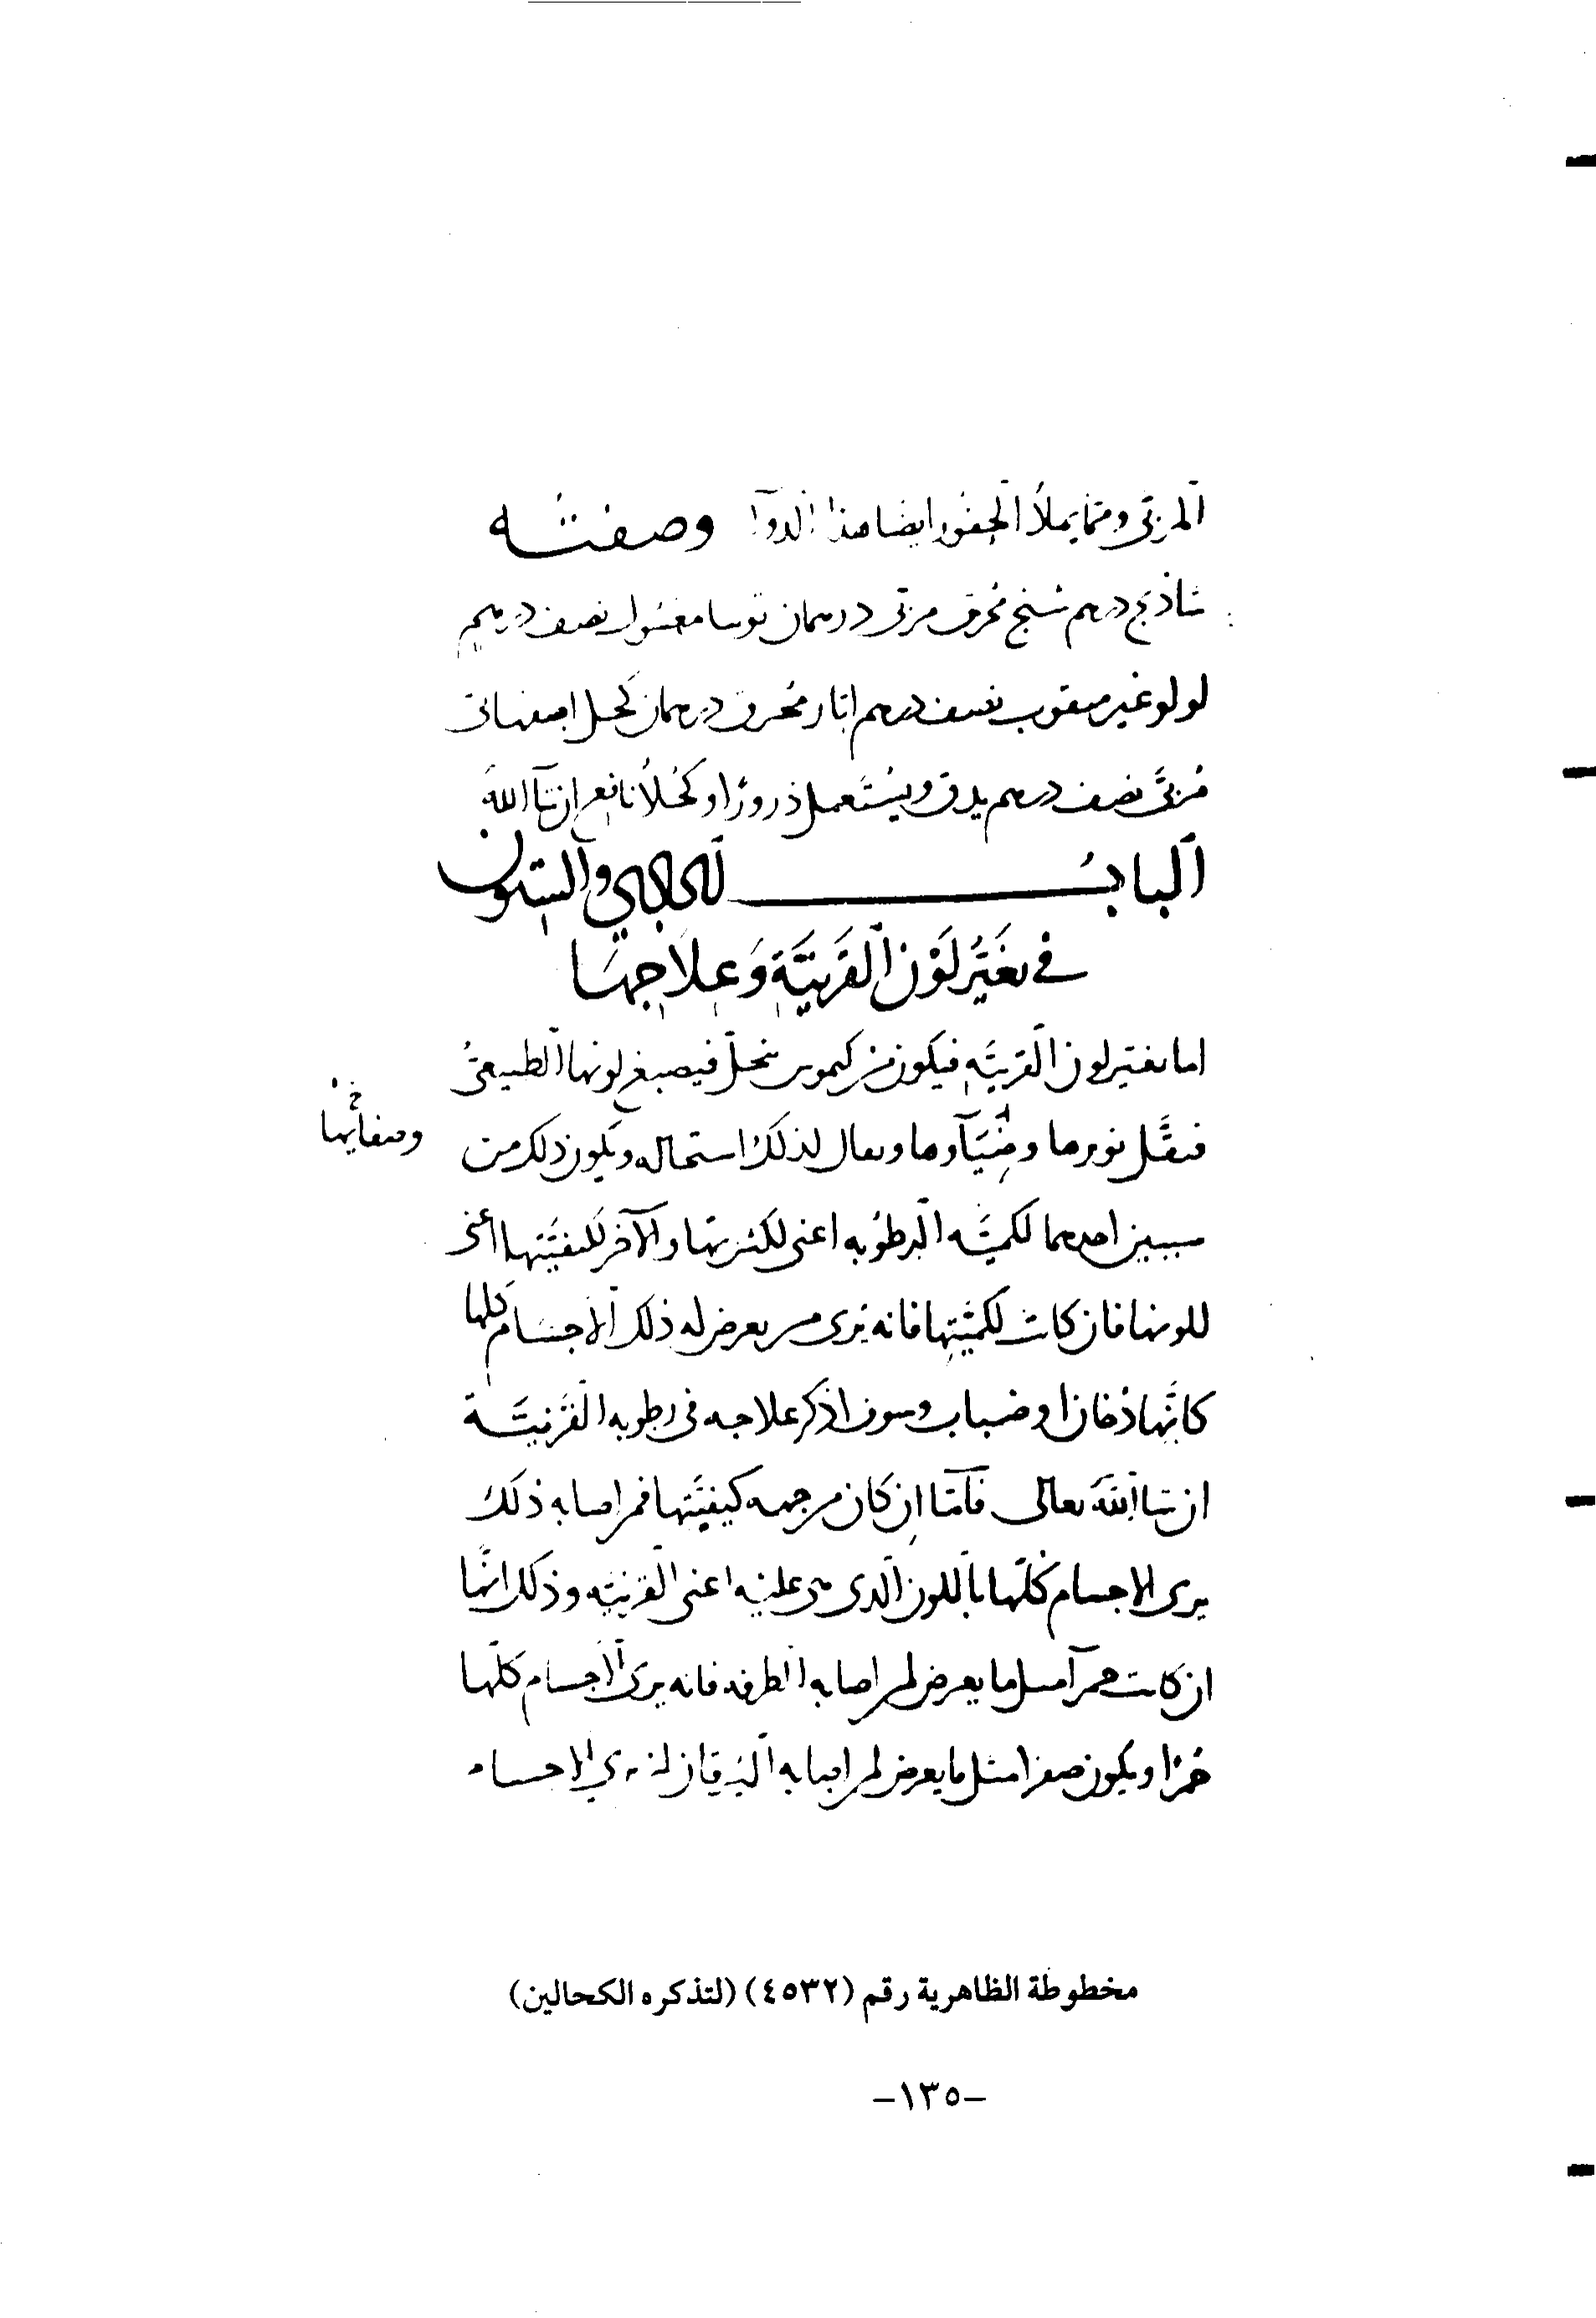 المربى ومما يملأ الحفور ايضا هذا الدوآ وصفته
شاذنج درهم شنج محرق مربى درهمان توتيا مغسول نصف درهم
لولو غير مثقوب نصف درهم ابار محرق درهمان كحل اصفهانى
مربَّى نصف درهم يدق ويُستَعمل ذرورًا او كُحلًا نافع ان شآ الله
الباب الحادي والستون
في تغيُّر لَوْن القَرنيَّة وَعِلاجِهَا
اما تغير لون القرنيَّه فيكون من كيموس ينحلّ فيصبغ لونها الطبيعىُّ
فيقلّ نورها وضيآوها ويقال لذلك استحاله ويكون ذلك من
وصفايها
سببين احدهما لكميَّه الرطوبه اعنى لكثرتها والآخر لكيفيَّتها اعنى
للونها فان كانت لكميَّتها فانه يَرى من يعرض له ذلك الأجسَام كلها
كانَّها دُخان او ضباب وسوف اذكر علاجه فى رطوبه القَرْنيَّة
ان شآ اللهَ تعالى فامّا اِن كان من جهه كيفيَّتها فمن اصابه ذلك
يرى الاجسام كُلّها باللون الَّذى هى عليه اعنى القرنيَّه وذلك انَّها
ان كانت حمرآ مثل ما يعرض لمن اصابه الطرفه فانه يرى الأجسام كلّها
حُمرًا ويكون صفرا مثل ما يعرض لمن اصابه اليَرقان لن يرى الاجسام
مخطوطة الظاهرية رقم (٤٥٣٢) (لتذكره الكحالين)
–١٣٥–